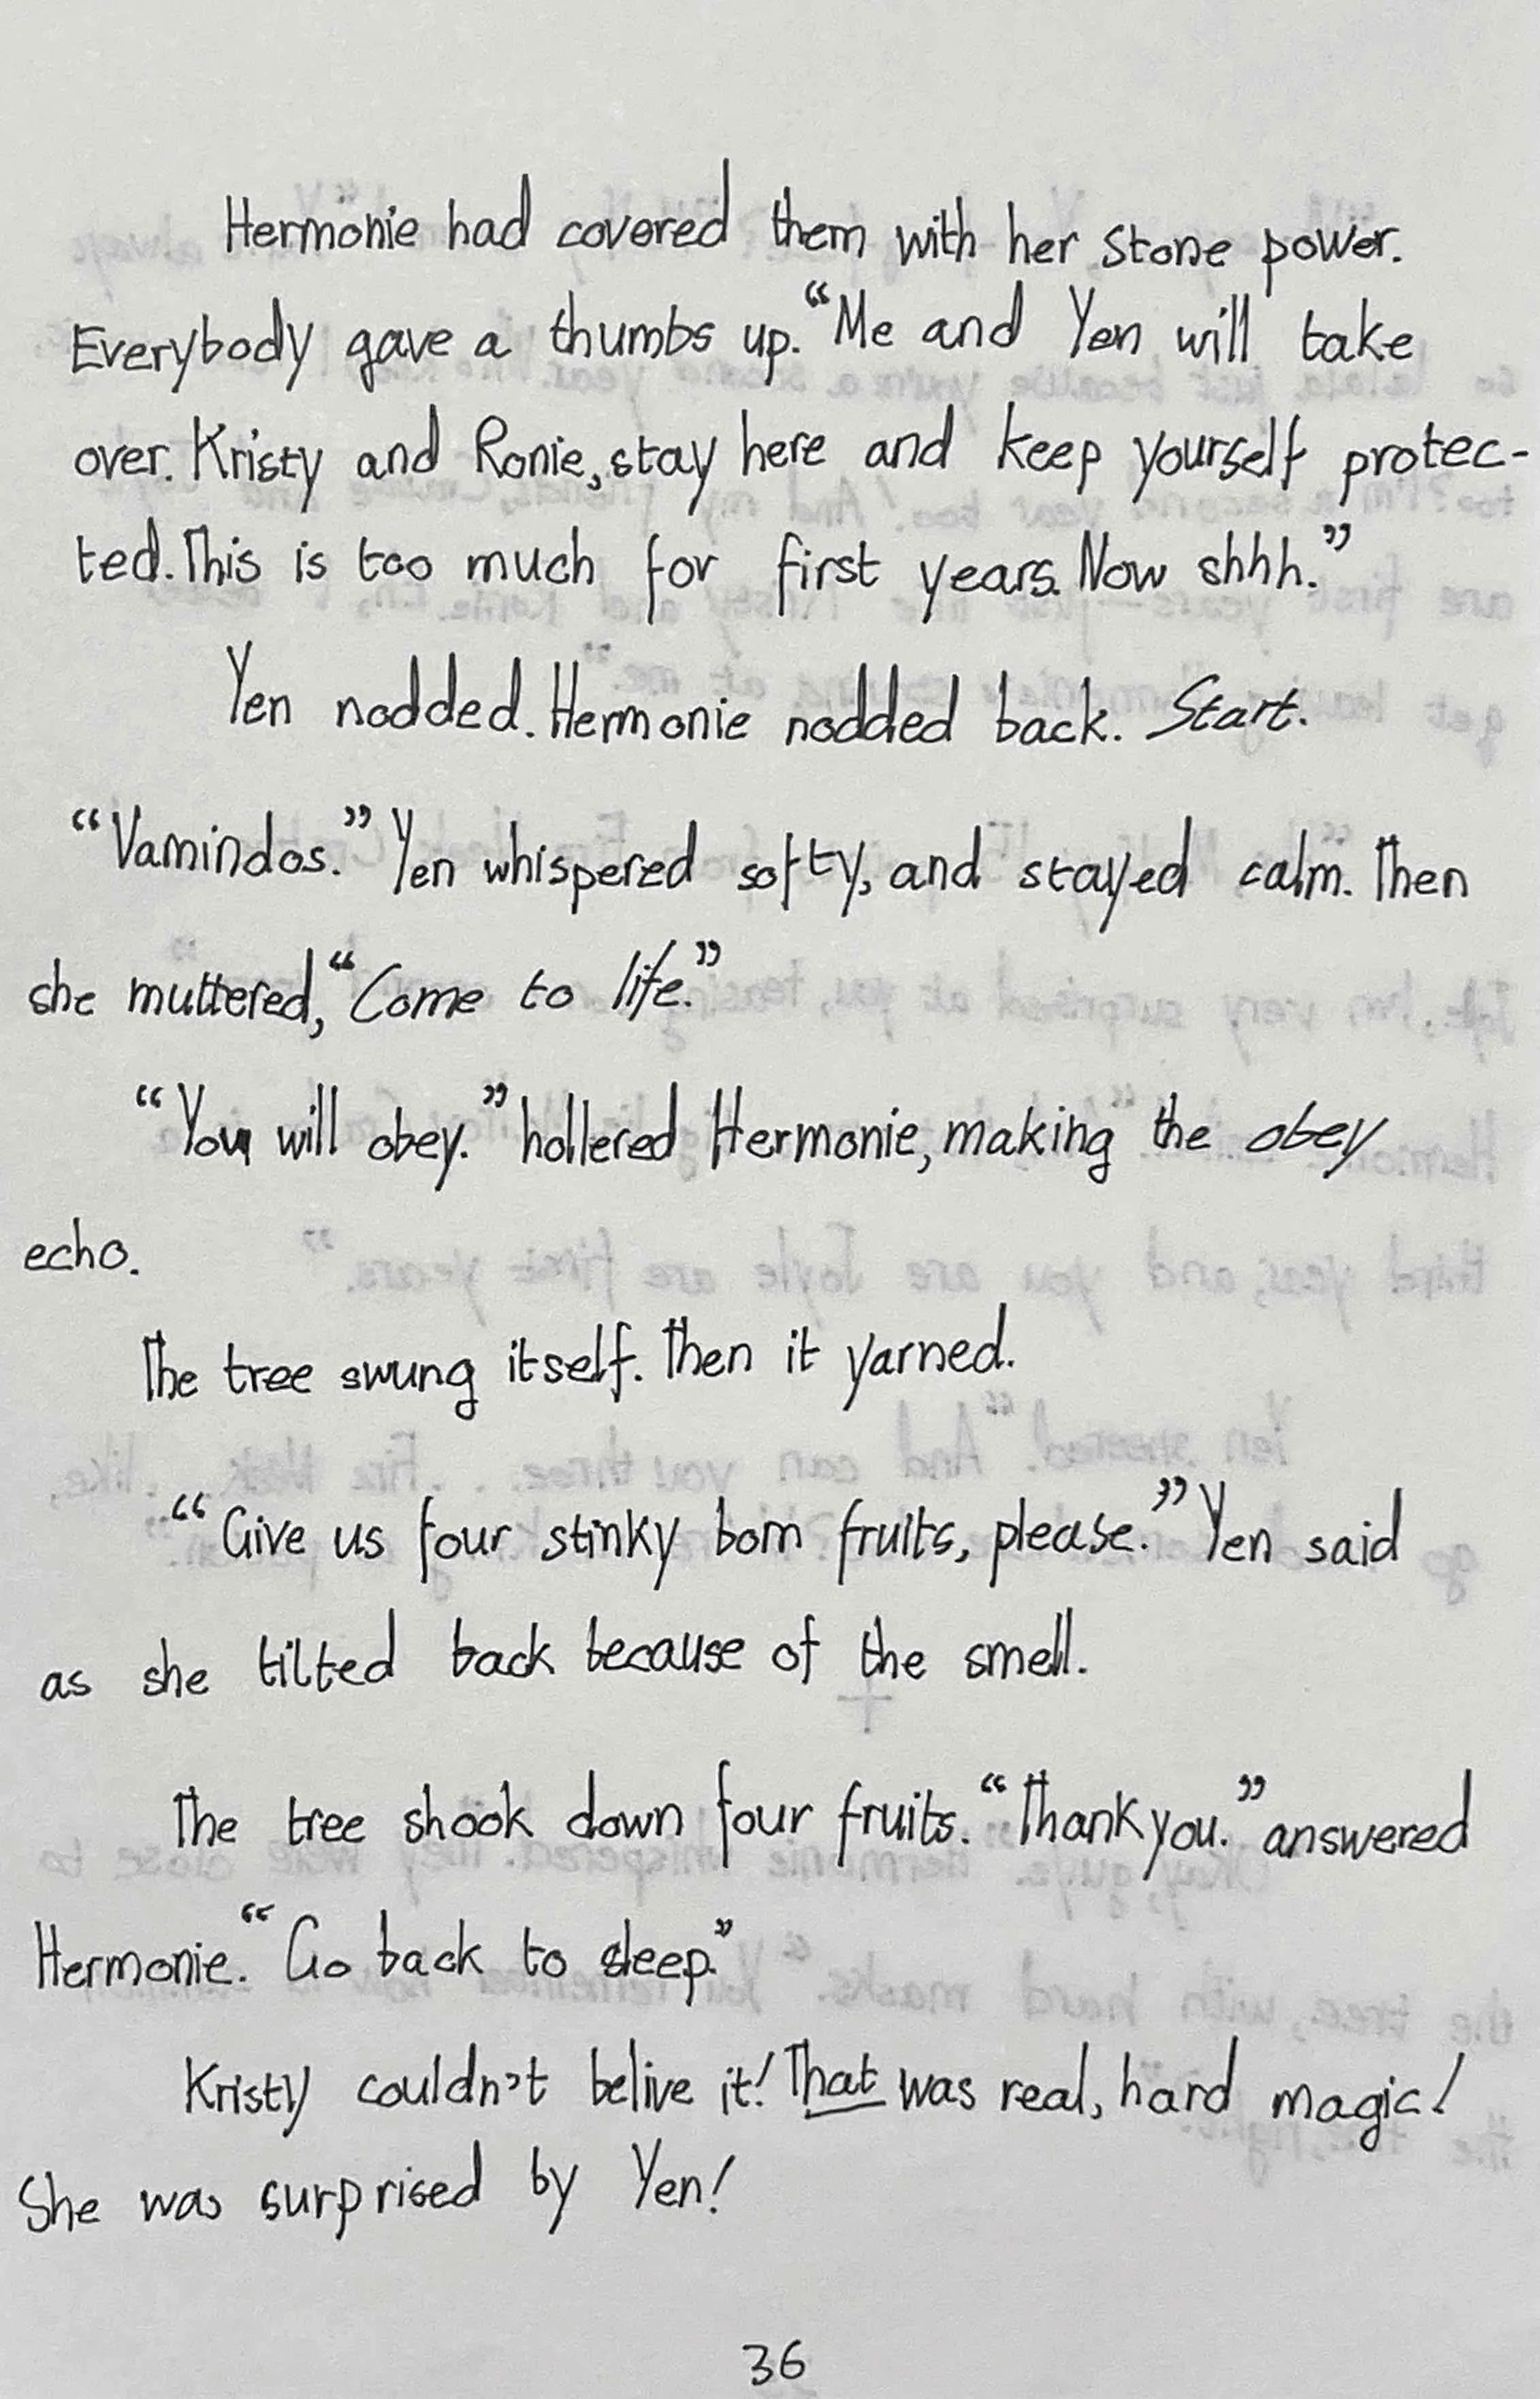 Hermonie had covered them with her stone power.
Everybody gave a thumbs up. “Me and Yen will take
over. Kristy and Ronie, stay here and keep yourself protec-
ted. This is too much for first years. Now shhh.”
Yen nodded. Hermonie nodded back. Start.
“Vamindos.” Yen whispered softy, and stayed calm. Then
she muttered, “Come to life.”
“You will obey.” hollered Hermonie, making the obey
echo.
The tree swung itself. Then it yarned.
“Give us four stinky bom fruits, please.” Yen said
as she tilted back because of the smell.
The tree shook down four fruits. “Thank you.” answered
Hermonie. “Go back to sleep.”
Kristy couldn't belive it! That was real, hard magic!
She was surprised by Yen!
36